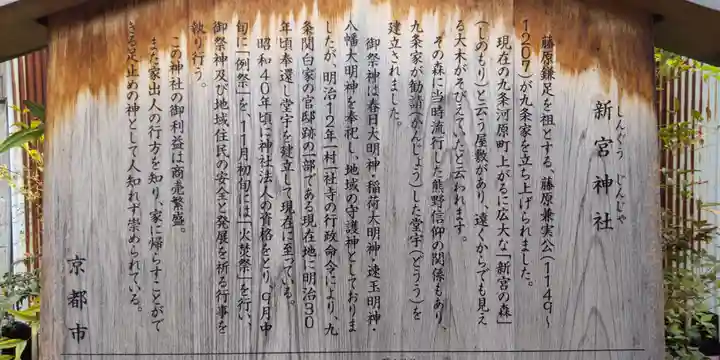 しんぐう じんじゃ
新宮神社
藤原鎌足を祖とする、藤原兼実公(1149〜
1207)が九条家を立ち上げられました。
現在の九条河原町上がるに広大な「新宮の森」
(しのもり)と云う屋敷があり、遠くからでも見え
る大木がそびえていたと云われます。
その森に当時流行した熊野信仰の関係もあり、
九条家が勧請(かんじょう)した堂宇(どうう)を
建立されました。
御祭神は春日大明神・稲荷大明神・速玉明神・
八幡大明神を奉祀し、地域の守護神としておりま
したが、明治12年「村」社寺の行政命令により、九
条関白家の官邸跡の一部である現在地に明治30
年頃奉還し堂宇を建立して現在に至っている。
昭和40年頃に神社法人の資格をとり、9月中
旬に「例祭」を、11月初旬には「火焚祭」を行い、
御祭神及び地域住民の安全と発展を祈る行事を
執り行う。
この神社の御利益は商売繁盛。
また家出人の行方を知り、家に帰らすことがで
きる足止めの神として人知れず崇められている。
京都市